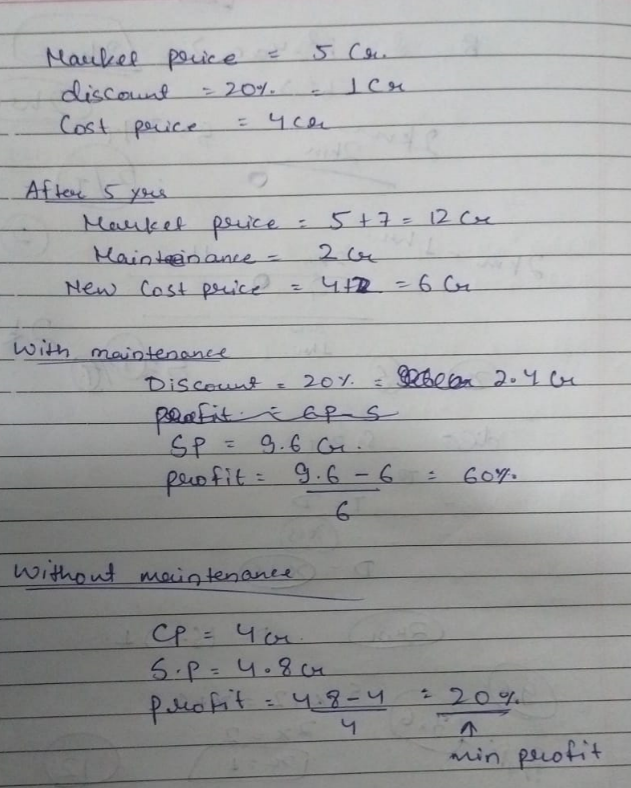 Market price = 5 Cr.
discount = 20% = 1 Cr
Cost price = 4 Cr
After 5 yrs
Market price = 5+7 = 12 Cr
Maintainance = 2 Cr
New Cost price = 4+2 = 6 Cr
With maintenance
Discount = 20% = 2.4 Cr
profit = SP - S
SP = 9.6 Cr.
profit = 9.6 - 6 = 60%
6
Without maintenance
CP = 4 Cr.
S.P = 4.8 Cr
profit = 4.8 - 4 = 20%
4 ↑
min profit